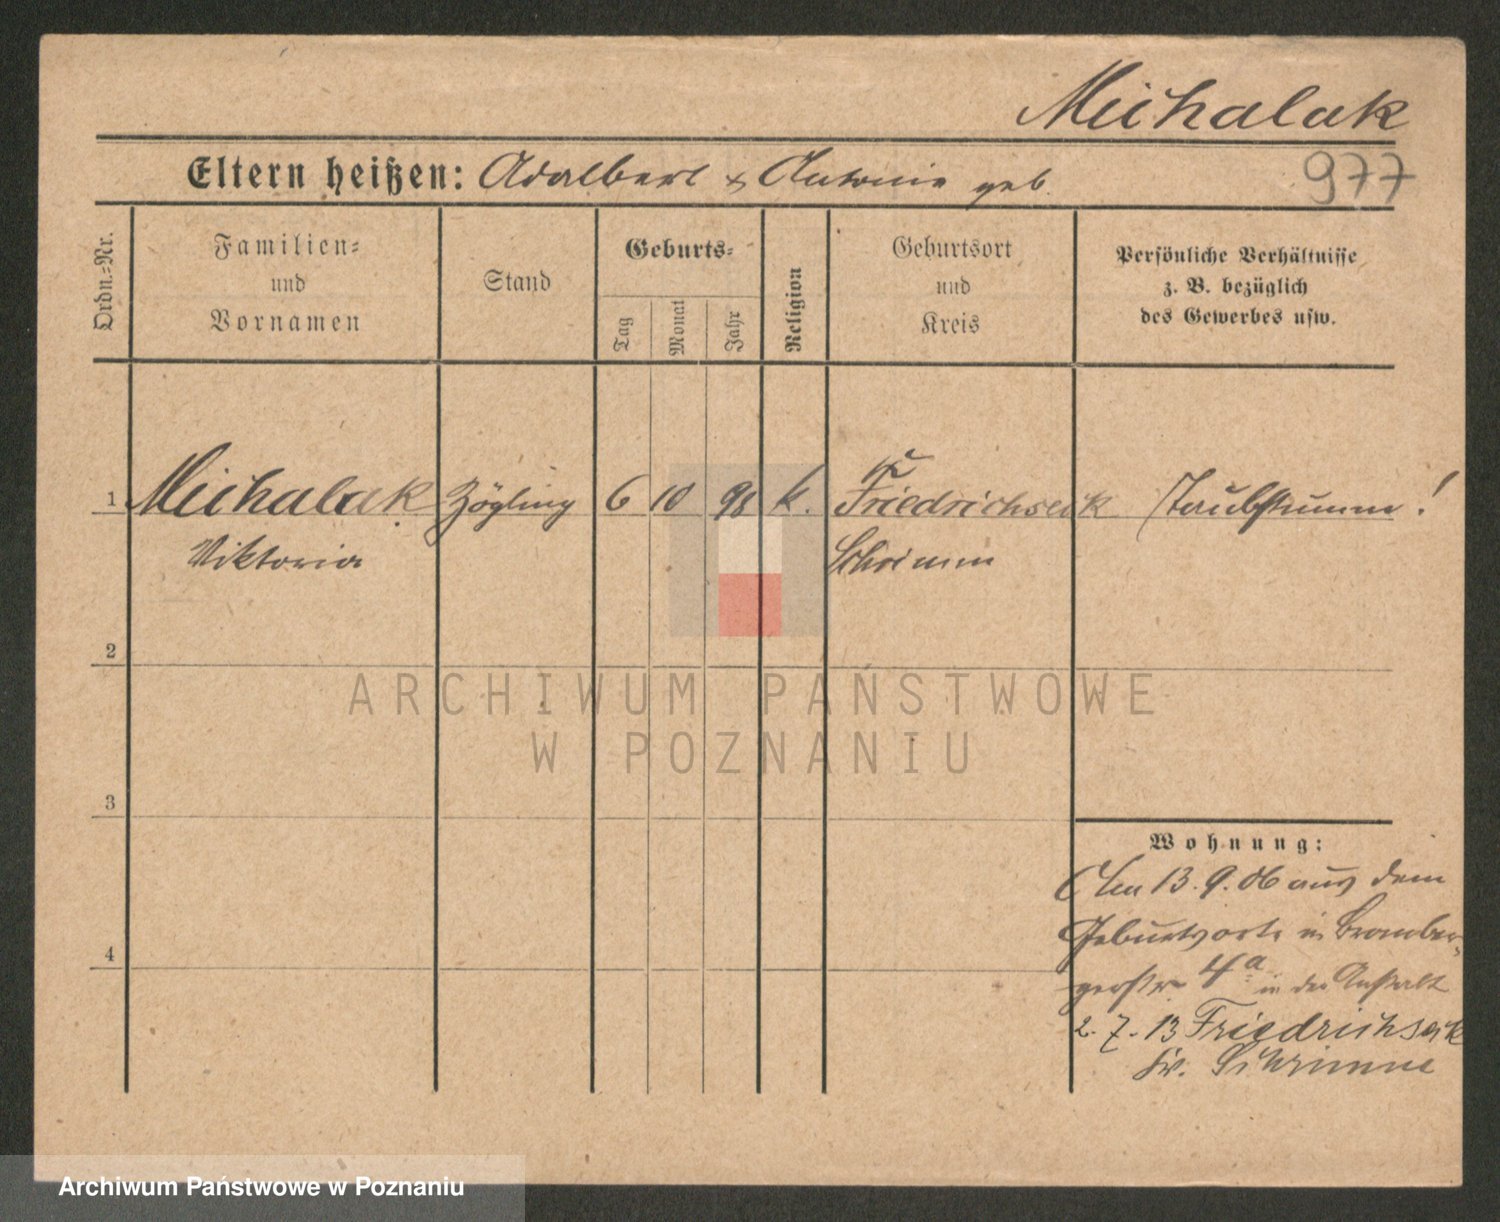 Michalak
Eltern heißen: Adalbert & Antonie geb.
977
Ordn.=Nr.
Familien=
und
Vornamen
Stand
Geburts=
Tag
Monat
Jahr
Religion
Geburtsort
und
Kreis
Persönliche Verhältnisse
z. B. bezüglich
des Gewerbes usw.
1 Michalak Zögling 6 10 98 k. Friedrichseck Taubstumm!
Viktoria Schrimm
2
ARCHIWUM PAŃSTWOWE
W POZNANIU
3
Wohnung:
Am 13.9.06 aus dem
Geburtsorte in Bromber-
4
gerstr 4a in der Anstalt
2.7.13 Friedrichseck
Kr. Schrimm
Archiwum Państwowe w Poznaniu